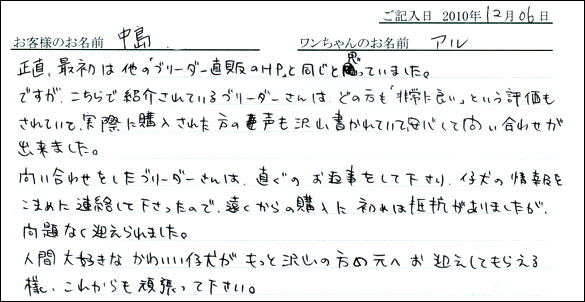 ご記入日 2010年12月06日
お客様のお名前 中島 ワンちゃんのお名前 アル
正直、最初は他の「ブリーダー直販のHP」と同じと思っていました。
ですが、こちらで紹介されているブリーダーさんは、どの方も「非常に良い」という評価も
されていて、実際に購入された方の声も沢山書かれていて安心して問い合わせが
出来ました。
問い合わせをしたブリーダーさんは、直ぐのお返事をして下さり、仔犬の情報を
こまめに連絡して下さったので、遠くからの購入に初めは抵抗がありましたが、
問題なく迎えられました。
人間大好きなかわいい仔犬がもっと沢山の方の元へお迎えしてもらえる
様、これからも頑張って下さい。